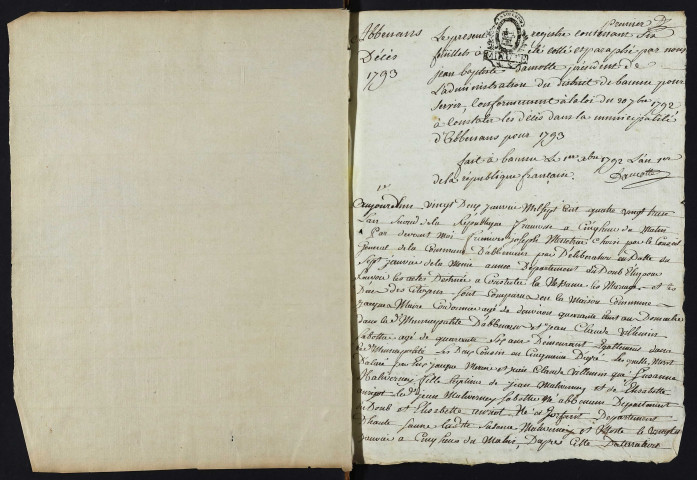 premier
Abbenans
Décès
1793
Le present registre contenant six
feuillets a été cotté et paraphé par nous
Jean Baptiste Damotte président de
L'administration du district de baume pour
servir, conformement à la loi du 20 7bre 1792
à constater les décès dans la municipalité
d'Abbenans pour 1793
fait à baume Le 1er xbre 1792 L'an 1er
de la république française. Damotte
1er
aujourdhuy vingt Deux janvier Mil sept Cent quatre vingt treize
Lan second de la République française a Cinq heure du Matin
Par devant Moi francois joseph choisi par le Conseil
General de la Commune D'abbenans par Deliberation en Datte du
sept janvier de la meme année Departement du Doub
les actes Destinée a Constater la Naissance les Mariage et les
Déces des Citoyens sont Comparu en la Maison Commune
jacque Maire Cordonnier agé de environ quarante trois ans Demeurant
dans la de Municipalité D'abbenans et jean Claude Villemin
Sabottier agé de quarante six ans Demeurant Egallement dans
la de Municipalité
jacque Maire et jean Claude Villemin que Susanne
Malverney fille legitime de jean Malverney et de Elisabette
jean Malverney Sabottier de abbenans Departement
du Doub et Elisabette Departement
d haute saune ladite Susanne Malverney est Morte le vingt deux
janvier a Cinq heure du Matin, D'apres Cette Declaration